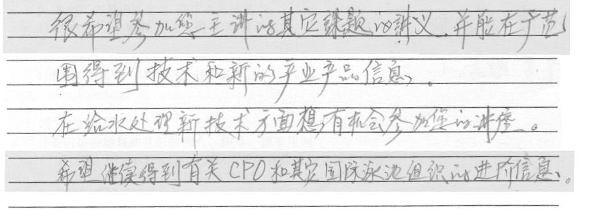 很希望参加您主讲的其它课题的讲义,并能在广范
围得到技术和新的产业产品信息、。
在给水处理新技术方面想有机会参加您的讲座。
希望继续得到有关CPO和其它国际泳池组织的进阶信息、。